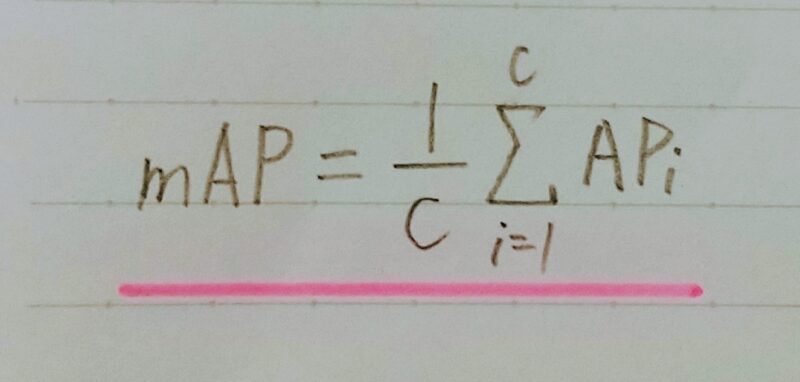 mAP = \frac{1}{C} \sum_{i=1}^{C} AP_i